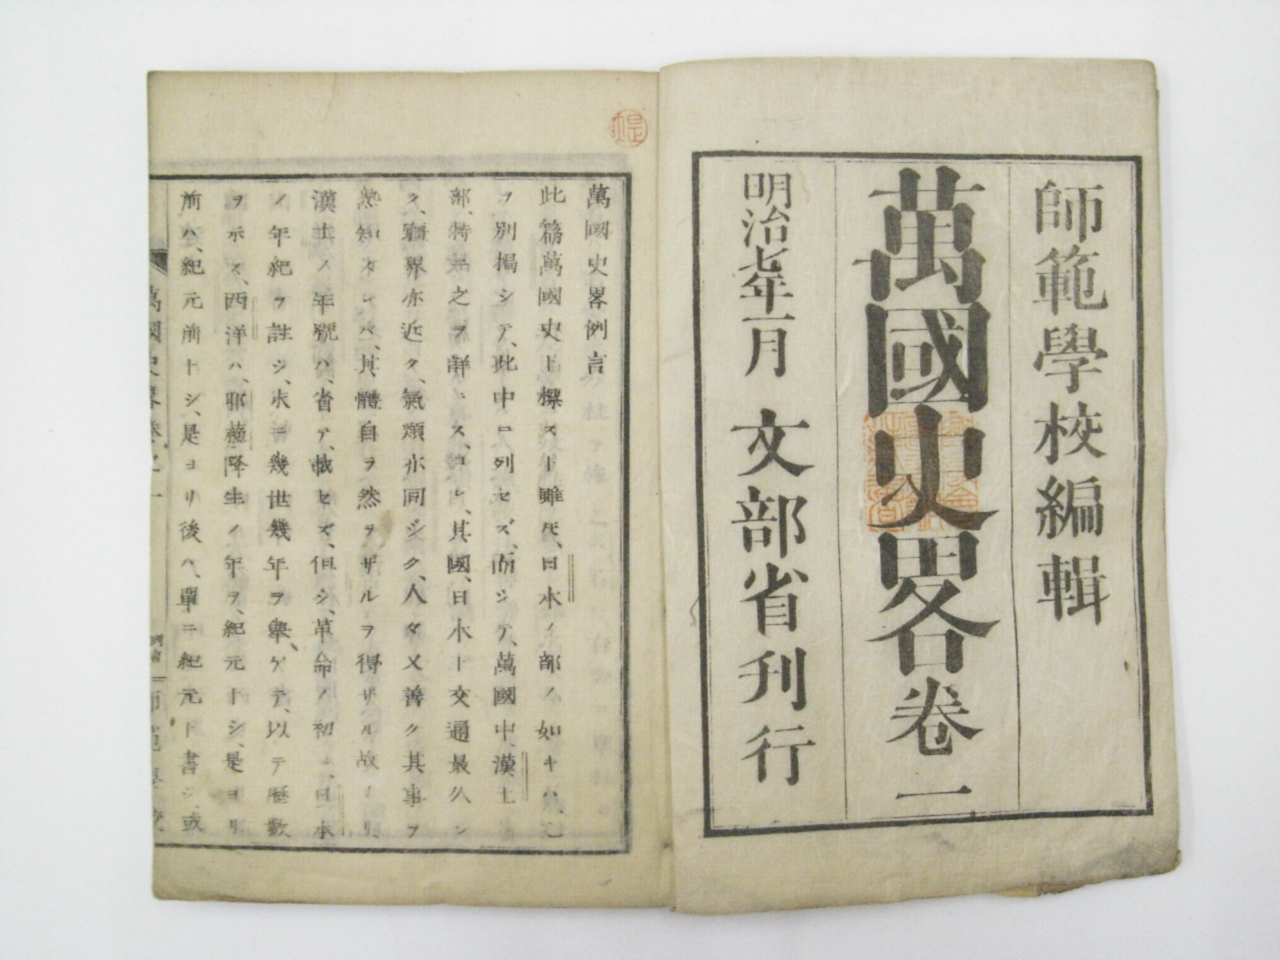 師範學校編輯
萬國史畧卷一
明治七年一月 文部省刊行
萬國史畧例言
此篇萬國史ト撰スト雖𪜈、日本ノ部ノ如キハ、已
ヲ別掲シテ、此中ニ列セズ、而シテ、萬國中、漢土
部、特ニ之ヲ詳ニス、コレ、其國、日本ト交通最久シ
ク、疆界亦近ク、氣類亦同シク、人々又善ク其事ヲ
熟知スレバ、其體自ラ然ラザルヲ得ザル故ナリ
漢土ノ年號ハ、省テ、載セズ、但シ、革命ノ初ニ、日本
ノ年紀ヲ註シ、水ニ幾世幾年ヲ擧ゲテ、以テ歴數
ヲ示ス、西洋ハ、耶蘇降生ノ年ヲ、紀元トシ、是ヨリ
前ハ、紀元前トシ、是ヨリ後ハ、單ニ紀元ト書シ、或
萬國史畧卷之一
師範學校